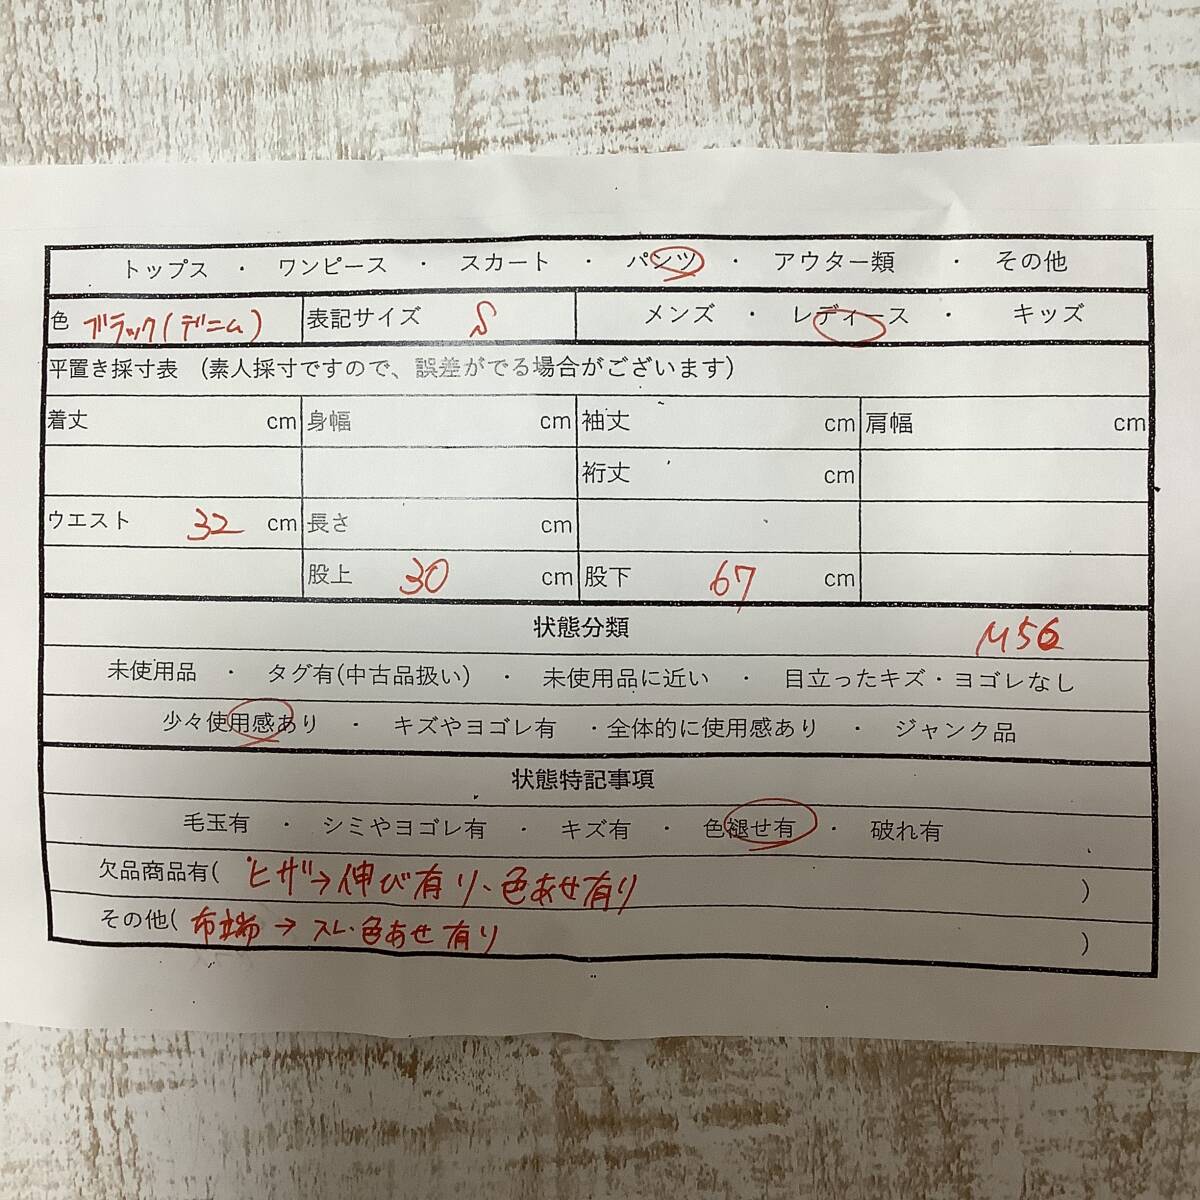 トップス ・ ワンピース ・ スカート ・ パンツ ・ アウター類 ・ その他
色 ブラック(デニム) 表記サイズ S メンズ ・ レディース ・ キッズ
平置き採寸表 (素人採寸ですので、誤差がでる場合がございます)
着丈 cm 身幅 cm 袖丈 cm 肩幅 cm
裄丈 cm
ウエスト 32 cm 長さ cm
股上 30 cm 股下 67 cm
状態分類 M56
未使用品 ・ タグ有(中古品扱い) ・ 未使用品に近い ・ 目立ったキズ・ヨゴレなし
少々使用感あり ・ キズやヨゴレ有 ・全体的に使用感あり ・ ジャンク品
状態特記事項
毛玉有 ・ シミやヨゴレ有 ・ キズ有 ・ 色褪せ有 ・ 破れ有
欠品商品有( ヒザ→伸び有り、色あせ有り )
その他( 布端→スレ・色あせ有り )